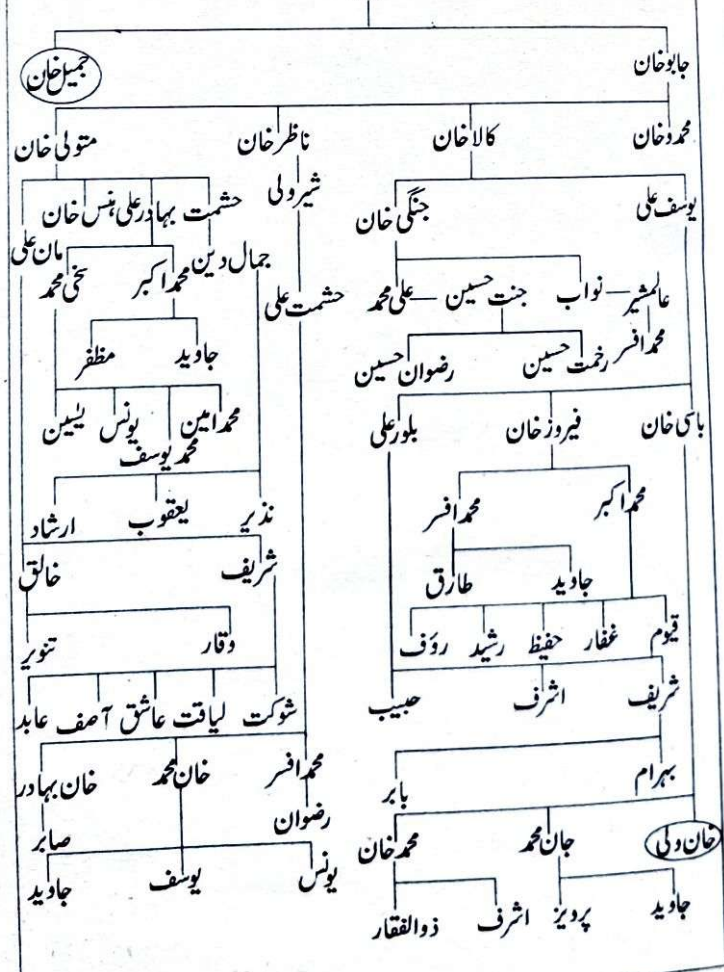 جابو خان جمیل خان
محمدو خان کالا خان ناظر خان متولی خان
یوسف علی جنگی خان شیر ولی حشمت بہادر علی ہنس خان
مان علی
عالمشیر نواب جنت حسین علی محمد حشمت علی جمال دین محمد اکبر سخی محمد
محمد افسر رخمت حسین رضوان حسین جاوید مظفر
باسی خان فیروز خان بلور علی محمد امین محمد یوسف یونس یٰسین
محمد اکبر محمد افسر نذیر یعقوب ارشاد
جاوید طارق شریف خالق
قیوم غفار حفیظ رشید رؤف وقار تنویر
شریف اشرف حبیب شوکت لیاقت عاشق آصف عابد
بہرام بابر محمد افسر خان محمد خان بہادر
رضوان صابر
خان ولی جان محمد محمد خان یونس یوسف جاوید
جاوید پرویز اشرف ذوالفقار